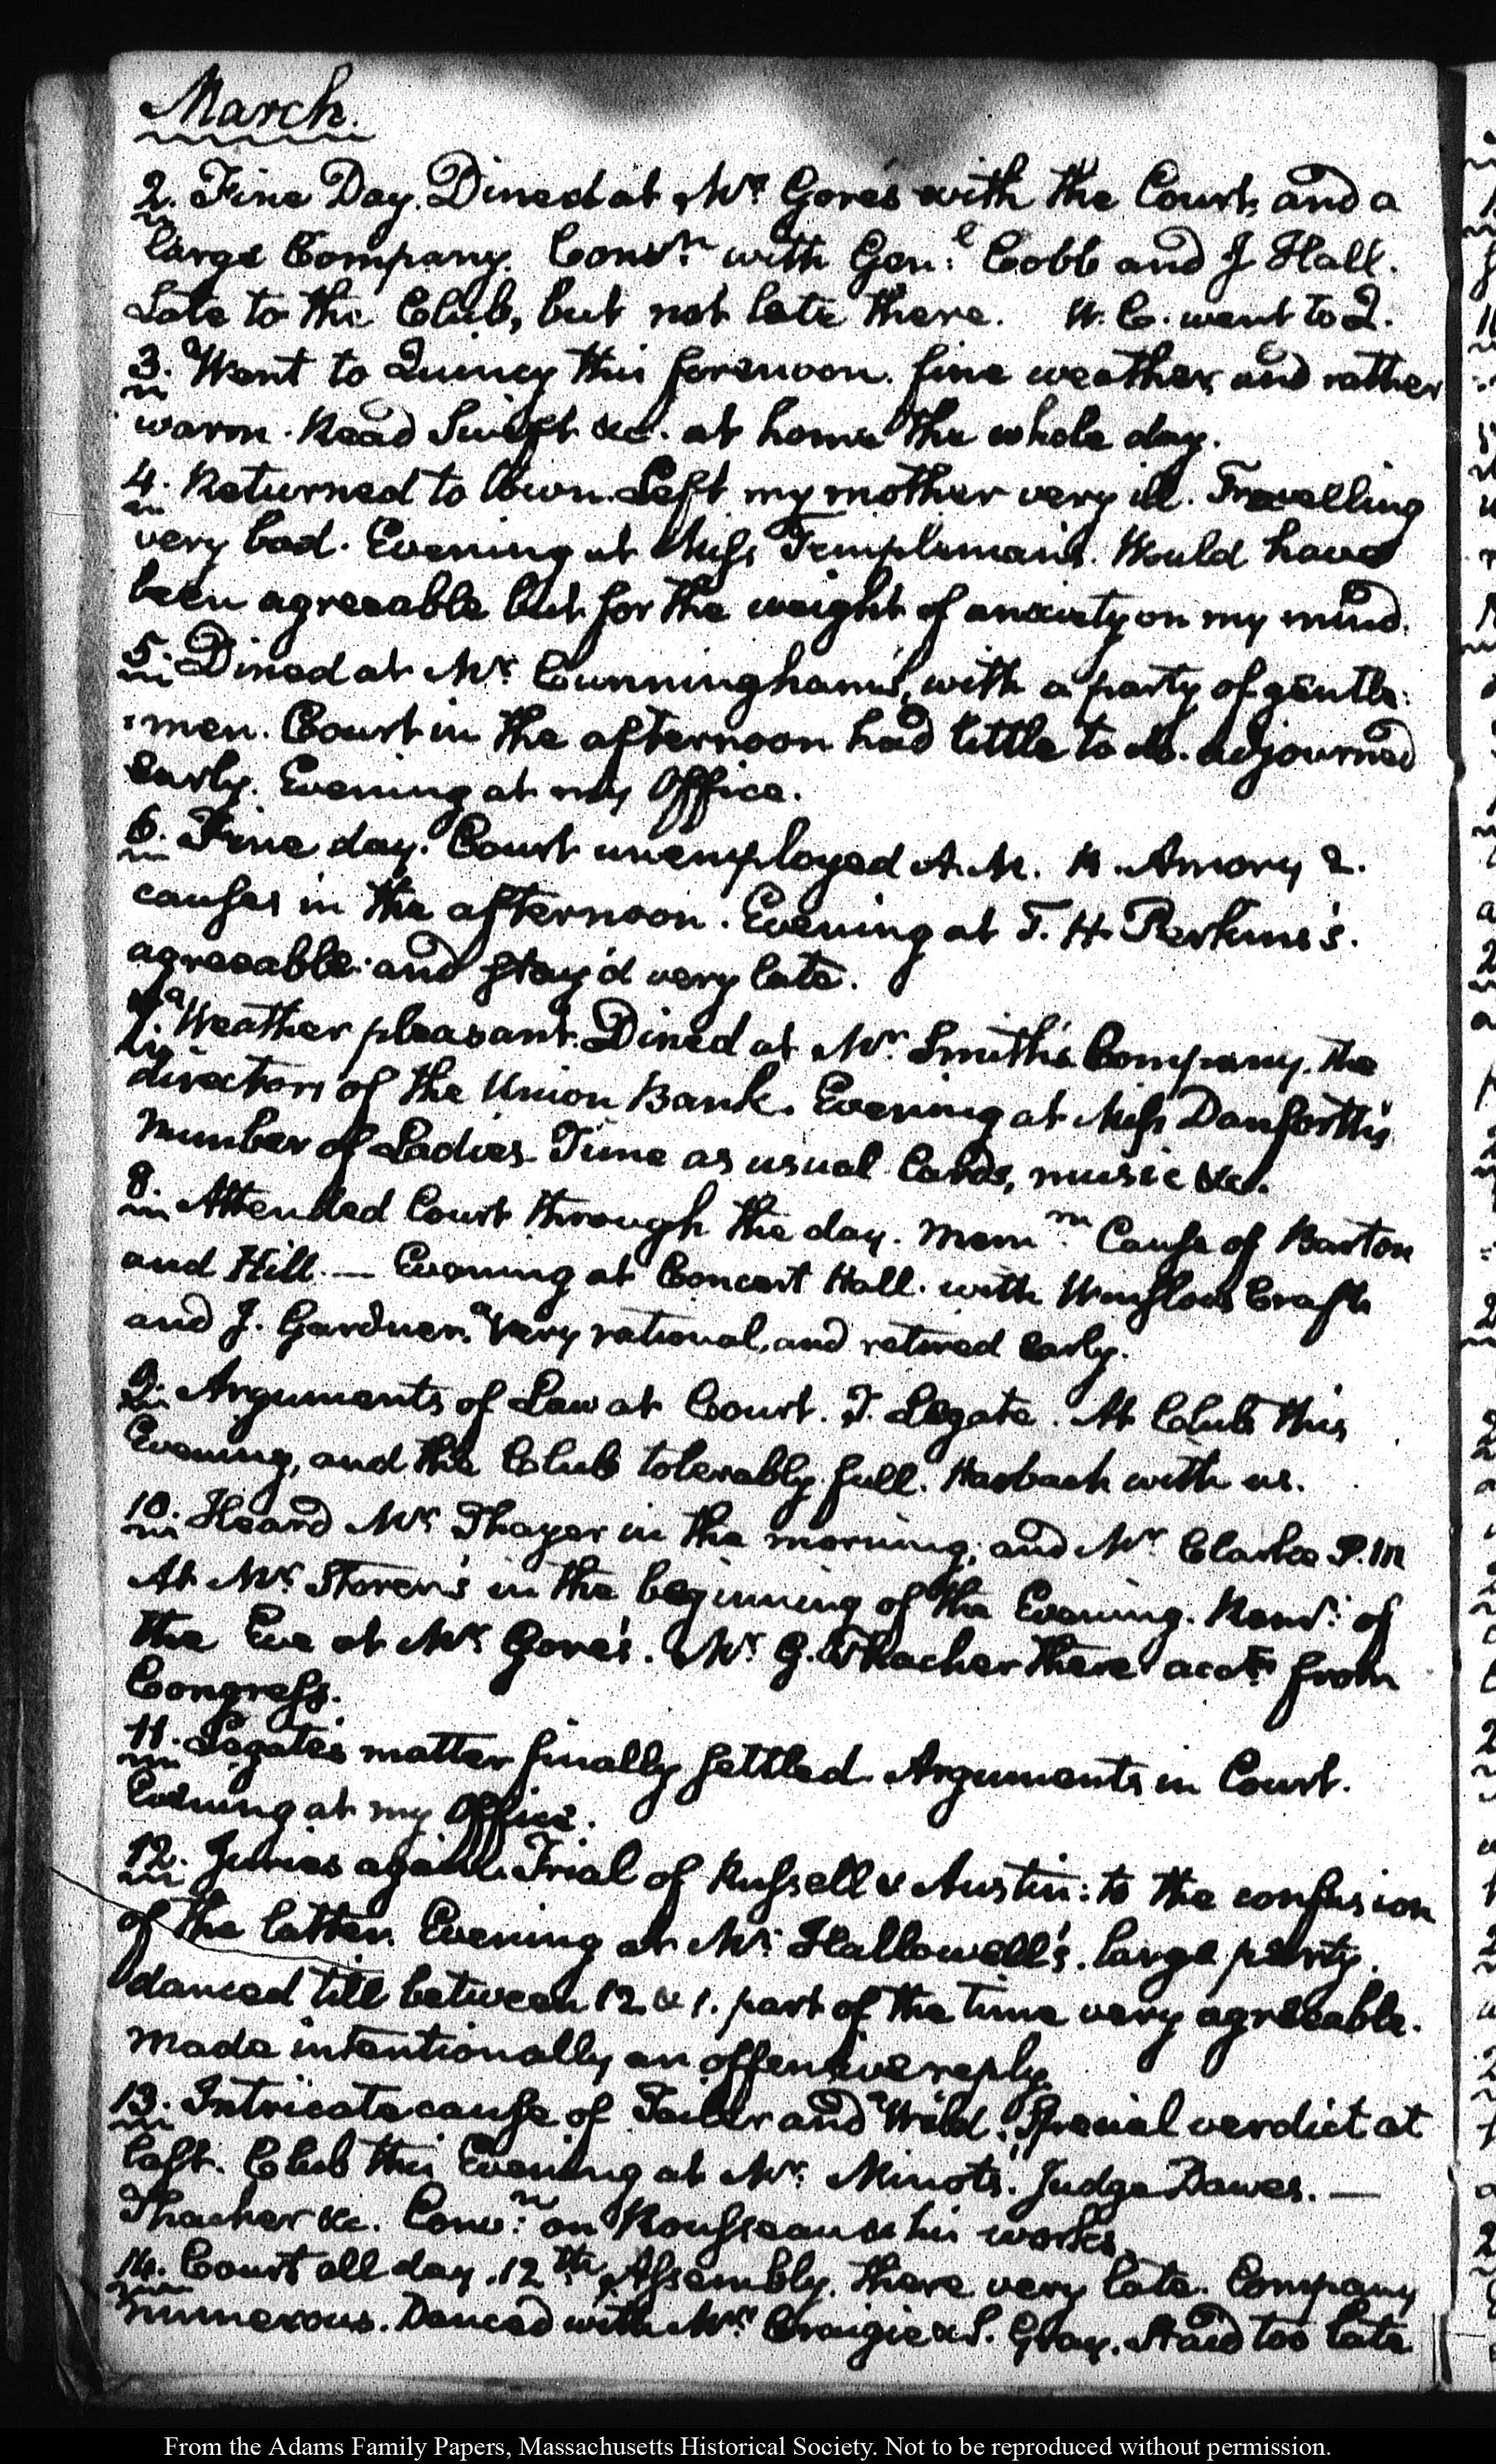 March.
2. Fine Day. Dined at Mr. Gore's with the Court, and a
large Company. Convn. with Genl. Cobb and J Hall.
Late to the Club, but not late there. W. C. went to Q.
3. Went to Quincy this forenoon. fine weather, and rather
warm. Read Swift &c. at home the whole day.
4. Returned to town. Left my mother very ill. Travelling
very bad. Evening at Miss Templeman's. Would have
been agreeable but for the weight of anxiety on my mind.
5. Dined at Mr. Cunningham's, with a party of gentle:
:men. Court in the afternoon had little to do. adjourned
early. Evening at my Office.
6. Fine day. Court unemployed A.M. R. Amory 2.
causes in the afternoon. Evening at T. H Perkins's.
agreeable: and stay'd very late.
7. Weather pleasant. Dined at Mr. Smith's Company, the
directors of the Union Bank. Evening at Miss Danforth's
Number of Ladies. Time as usual Cards, music &c.
8. Attended Court through the day. Memm. Cause of Barton
and Hill. — Evening at Concert Hall. with Winslow Crafts
and J. Gardner. Very rational, and retired early.
9. Arguments of Law at Court. T. Legate. At Club this
Evening, and the Club tolerably full. Harbach with us.
10. Heard Mr. Thayer in the morning, and Mr. Clarke P.M
At Mr. Storer's in the beginning of the Evening. Remr. of
the Eve at Mr. Gore's. Mr. G. Thacher there from
Congress.
11. Legate's matter finally settled. Arguments in Court.
Evening at my Office.
12. Juries again. Trial of Russell v Austin: to the confusion
of the latter. Evening at Mr. Hallowell's. large party.
danced till between 12 & 1. part of the time very agreeable.
Made intentionally an offensive reply.
13. Intricate cause of and Wild. Special verdict at
last. Club this Evening at Mr. Minots. Judge Dawes. —
Thacher &c. Convn. on Rousseau & his works.
14. Court all day. 12th. Assembly. there very late. Company
numerous. Danced with Mrs. Craigie & S. Gray. Staid too late
From the Adams Family Papers, Massachusetts Historical Society. Not to be reproduced without permission.